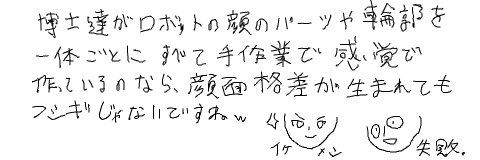 博士達がロボットの顔のパーツや輪郭を
一体ごとにすべて手作業で感覚で
作っているのなら、顔面格差が生まれても
フシギじゃないですねw
イケメン
失敗.